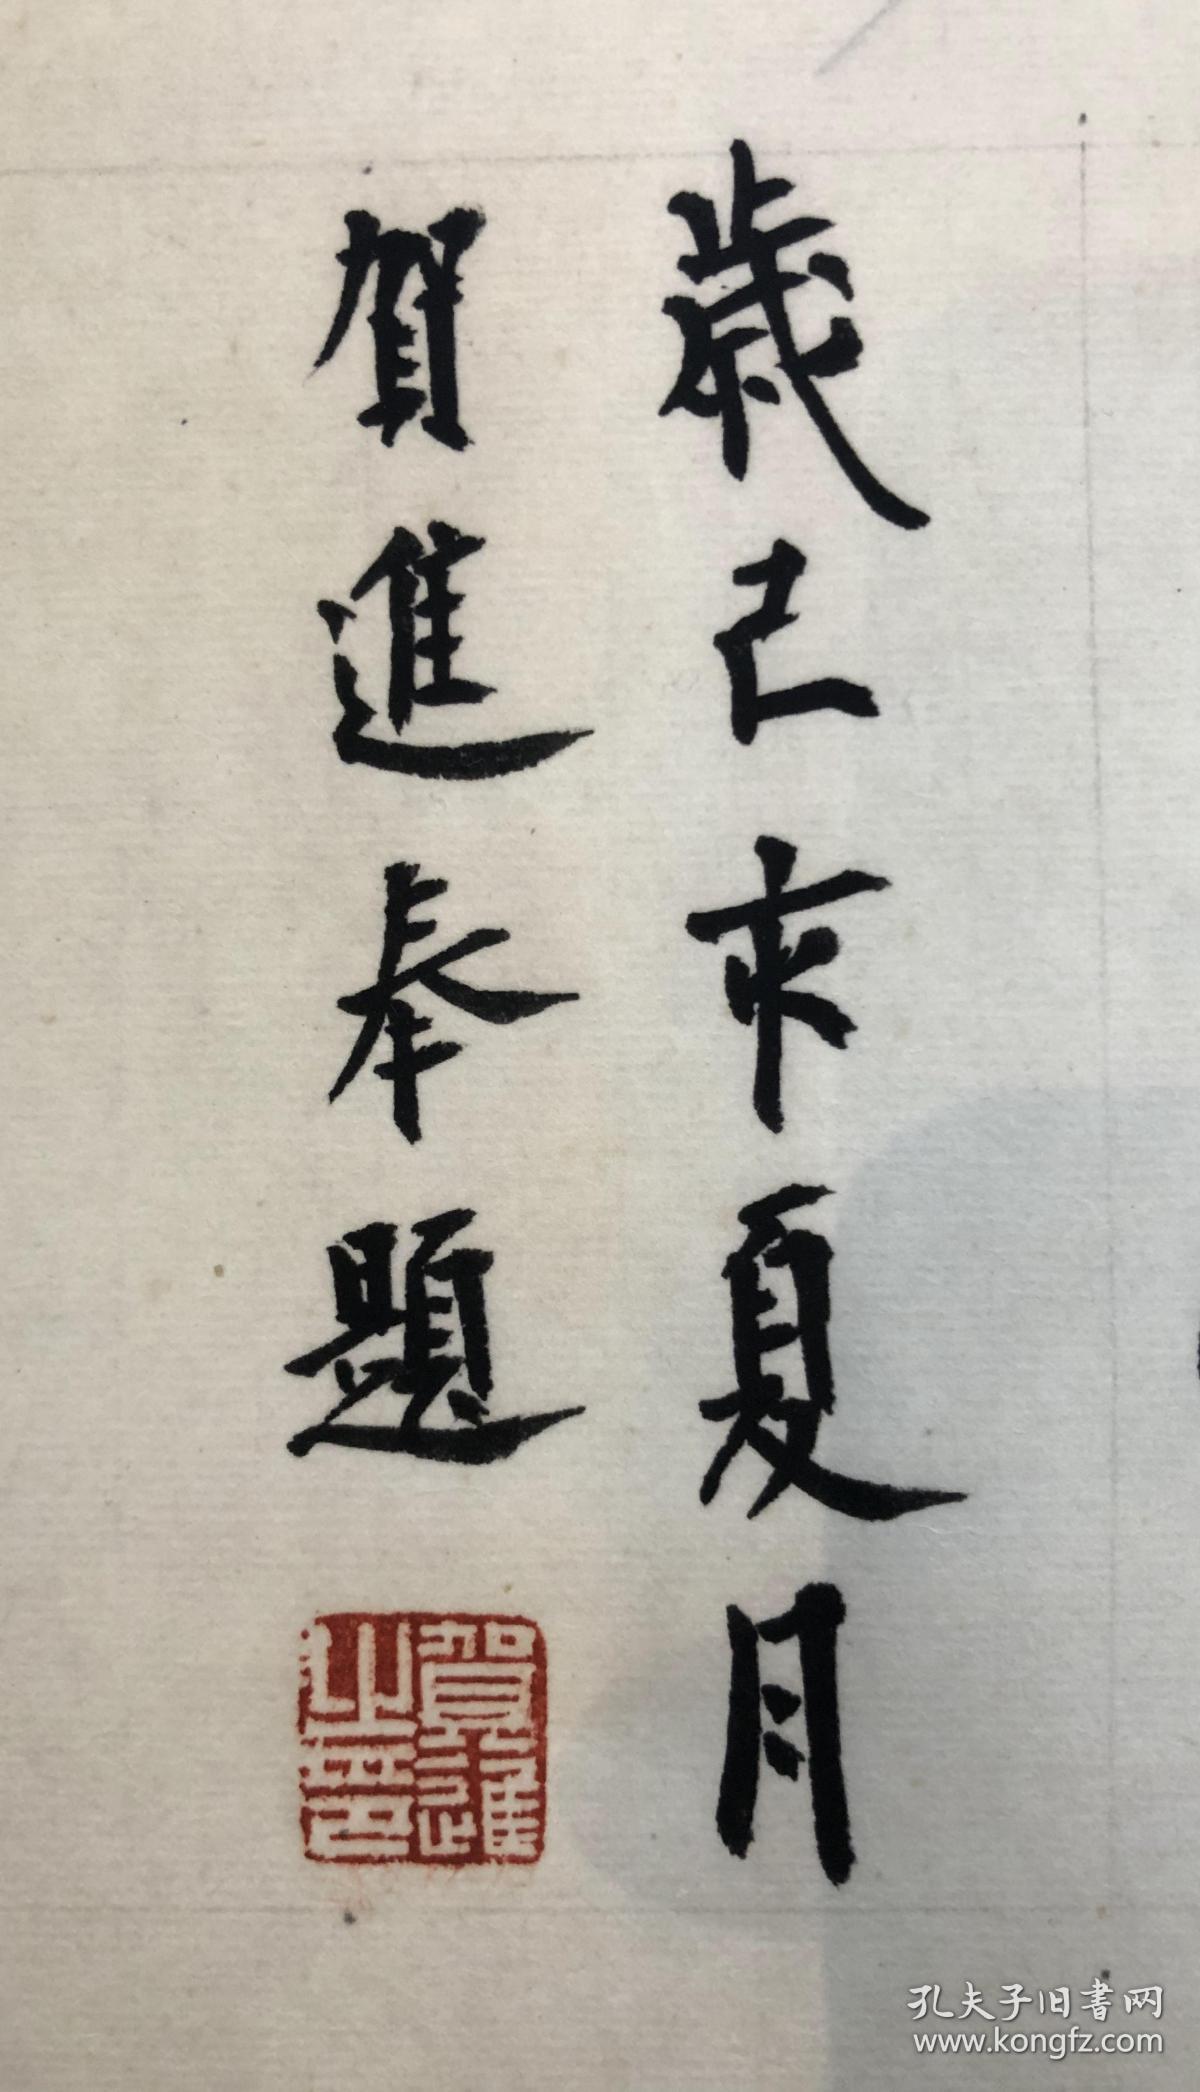 歲己未夏月
賀進奉題
賀進之印
孔夫子旧書网
www.kongfz.com